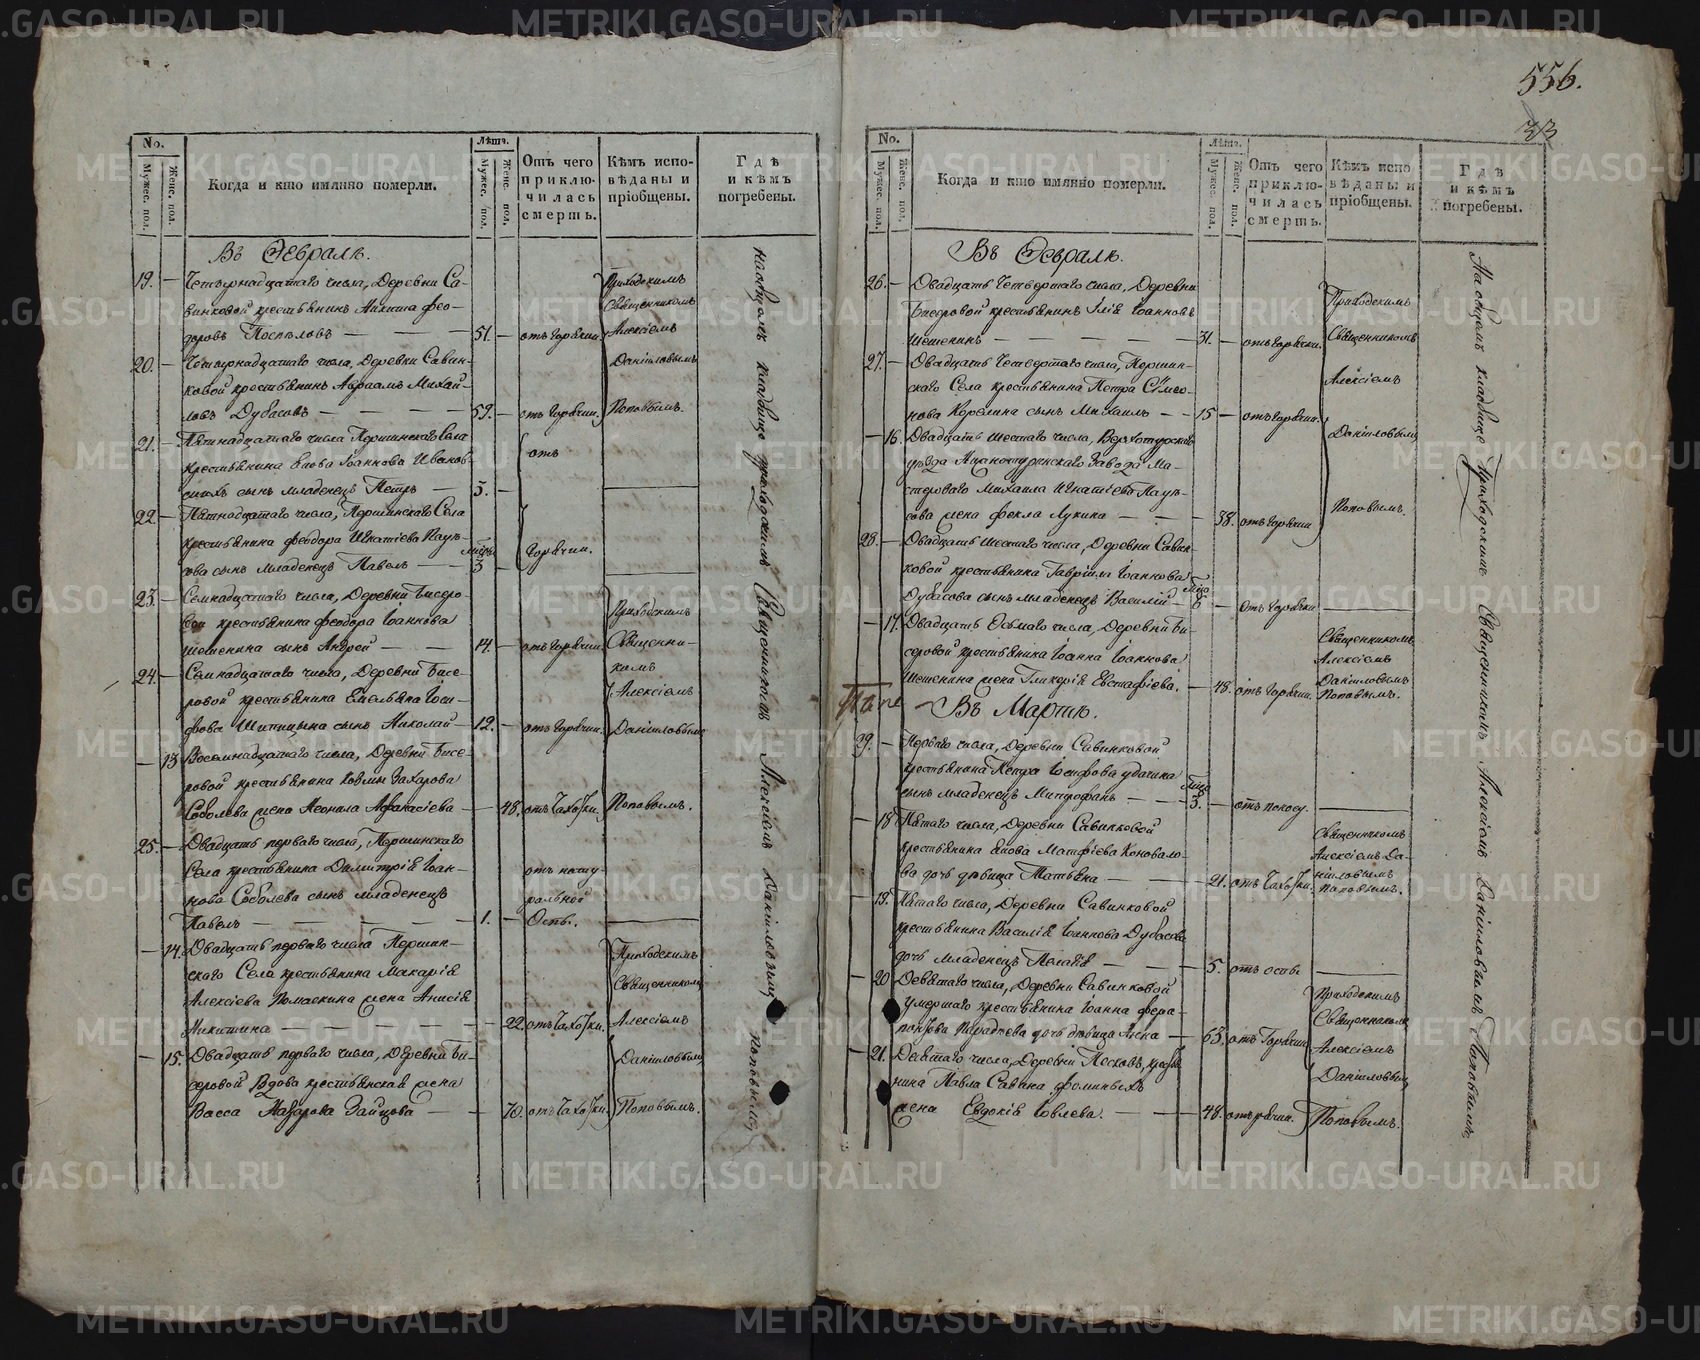 556.
33
No.
Лѣта.
Мужес. пол.
Женс. пол.
Когда и кто имянно померли.
Мужес. пол.
Женс. пол.
Отъ чего приклю-чилась смерть.
Кѣмъ испо-вѣданы и пріобщены.
Гдѣ и кѣмъ погребены.
Въ Февралѣ.
19. — Четырнадцатаго числа, Деревни Са-
винковой крестьянинъ Никита Фео-
доровъ Поспѣловъ — — — 51. — отъ горячки.
Приходскимъ
Священникомъ
Алексіемъ
Даніиловымъ
Поповымъ.
20. — Четырнадцатаго числа, Деревни Савин-
ковой крестьянинъ Авраамъ Михай-
ловъ Дубасовъ — — — 59. — отъ горячки.
21. — Пятнадцатаго числа Першинскаго Села
крестьянина Іоаннова
сынъ младенецъ Петръ — 3. —
отъ
22. — Пятнадцатаго числа, Першинскаго Села
крестьянина Феодора Игнатіева Паль-
цова сынъ младенецъ Павелъ — — 3 — горячки.
23. — Семнадцатаго числа, Деревни Бисеро-
вой крестьянина Феодора Іоаннова
Шешенина сынъ Андрей — — 14. — отъ горячки.
Приходскимъ
Священни-
комъ
Алексіемъ
Даніиловымъ
Поповымъ.
24. — Семнадцатаго числа, Деревни Бисе-
ровой крестьянина Емельяна Іоси-
фова Шипицына сынъ Николай — 12. — отъ горячки.
— 13. Восемнадцатаго числа, Деревни Бисе-
ровой крестьянина Захарова
Соболева жена Неонила Афанасіева — — 48. отъ Чахотки.
25. — Двадцать перваго числа, Першинскаго
Села крестьянина Димитрія Іоан-
нова Соболева сынъ младенецъ
Павелъ — — — 1. — Оспы.
отъ нату-
ральной
— 14. Двадцать перваго числа Першин-
скаго Села крестьянина Макарія
Алексіева жена Анисія
Никитина — — — 22. отъ Чахотки.
Приходскимъ
Священникомъ
Алексіемъ
Даніиловымъ
Поповымъ.
— 15. Двадцать перваго числа, Деревни Би-
серовой Вдова крестьянская жена
Васса Назарова Зайцова — — 70. отъ Чахотки.
на общемъ кладбище приходскимъ Священникомъ Алексіемъ Даніиловымъ Поповымъ
No.
Лѣта.
Мужес. пол.
Женс. пол.
Когда и кто имянно померли.
Мужес. пол.
Женс. пол.
Отъ чего приклю-чилась смерть.
Кѣмъ испо-вѣданы и пріобщены.
Гдѣ и кѣмъ погребены.
Въ Февралѣ.
26. — Двадцать Четвертаго числа, Деревни
Бисеровой крестьянинъ Илія Іоанновъ
Шешенинъ — — — 31. — отъ горячки.
Приходскимъ
Священникомъ
Алексіемъ
Даніиловымъ
Поповымъ.
27. — Двадцать Четвертаго числа, Першин-
скаго Села крестьянина Петра Симео-
нова Корелина сынъ Михаилъ — — 15 — отъ горячки.
— 16. Двадцать шестаго числа, Верхотурскаго
уѣзда Завода Ма-
стероваго Михаила Игнатіева Паль-
цова жена Фекла Лукина — — — 38. отъ горячки
28. — Двадцать шестаго числа, Деревни Савин-
ковой крестьянина Гавріила Іоаннова
Дубасова сынъ младенецъ Василій — 6 — отъ горячки
— 17. Двадцать Осьмаго числа, Деревни Би-
серовой крестьянина Іоанна Іоаннова
Шешенина жена Гликерія Евстафіева. — 48. отъ горячки.
Священникомъ
Алексіемъ
Даніиловымъ
Поповымъ.
Въ Мартѣ.
29. — Перваго числа, Деревни Савинковой
крестьянина Петра Іосифова Удачина
сынъ младенецъ Митрофанъ — — 3. — отъ поносу.
— 18 Пятаго числа, Деревни Савинковой
крестьянина Якова Матфіева Коновало-
ва дочь дѣвица Татьяна — — 21. отъ Чахотки.
Священникомъ
Алексіемъ Да-
ніиловымъ
Поповымъ.
— 19. Пятаго числа, Деревни Савинковой
крестьянина Василія Іоаннова Дубасова
дочь младенецъ Пелагія — — 5. отъ оспы
— 20 Девятаго числа, Деревни Савинковой
умершаго крестьянина Іоанна Фера-
понтова дочь дѣвица Анна — 63. отъ Горячки
Приходскимъ
Священникомъ
Алексіемъ
Даніиловымъ
Поповымъ.
— 21. Девятаго числа, Деревни Песковъ, кресть-
нина Павла Савина Фоминыхъ
жена Евдокія Іовлева. — — 48. отъ горячки.
На общемъ кладбище Приходскимъ Священникомъ Алексіемъ Даніиловымъ Поповымъ.
METRIKI.GASO-URAL.RU